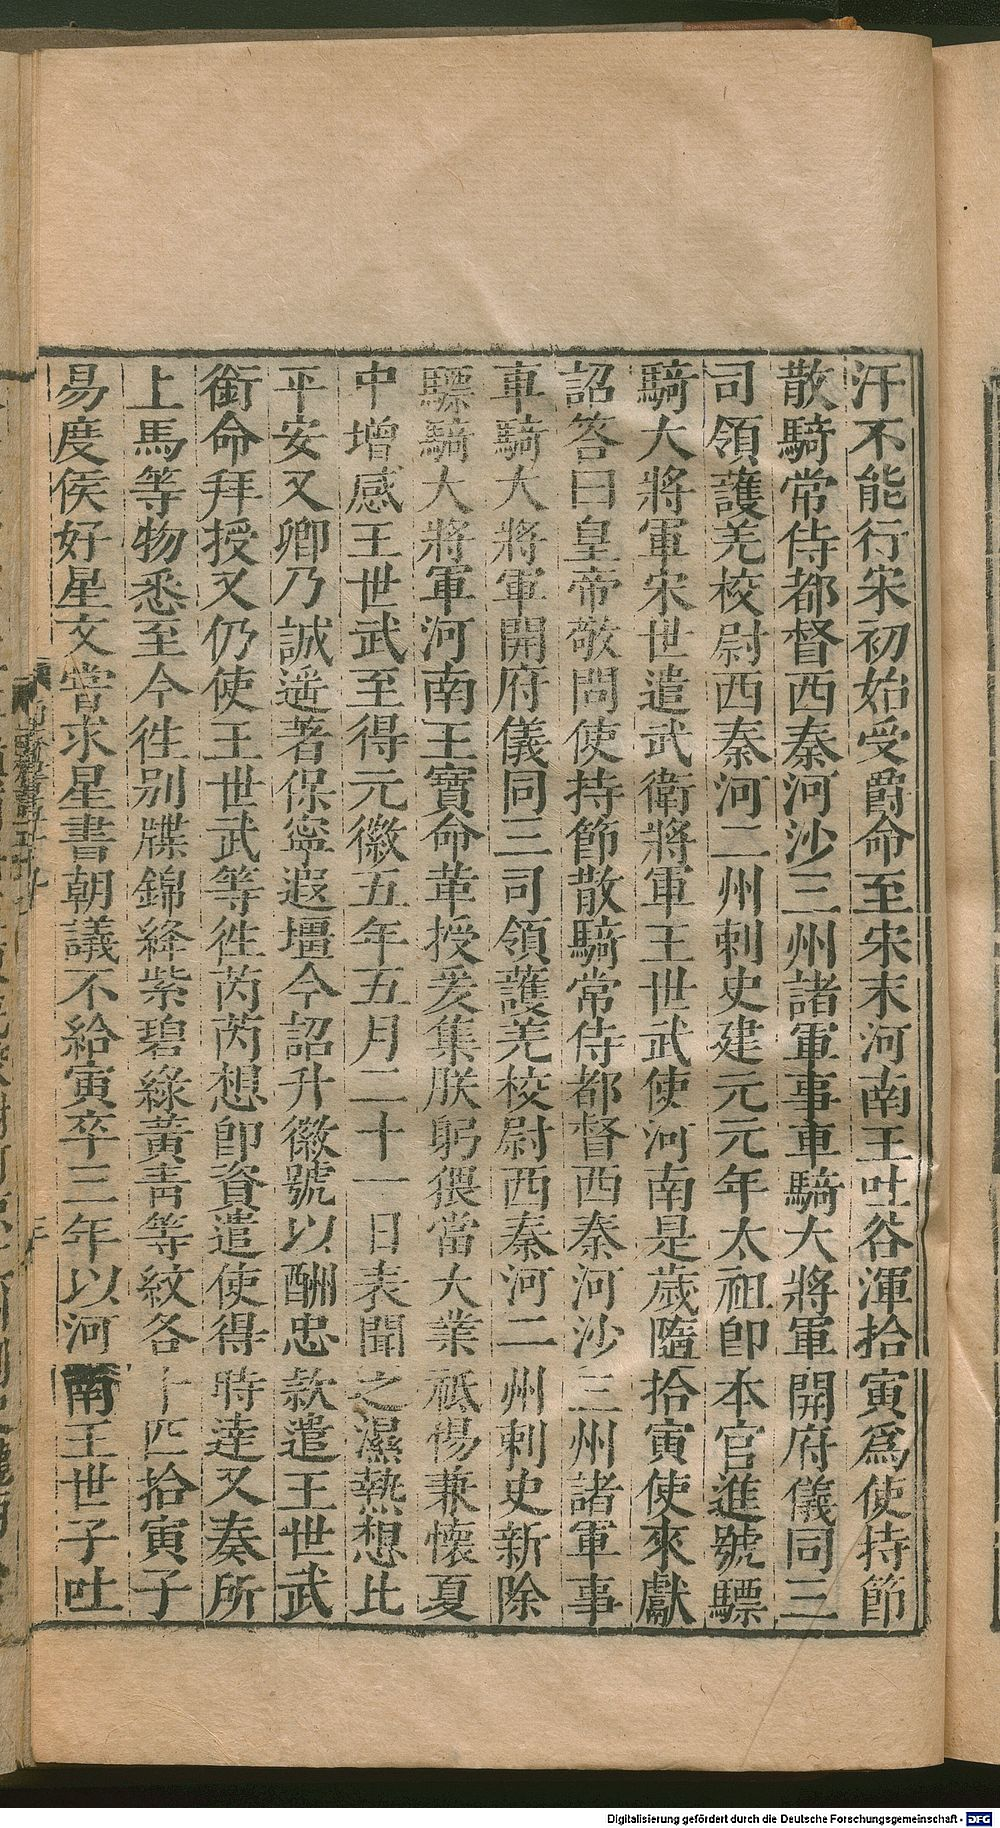 汗不能行宋初始受爵命至宋末河南王吐谷渾拾寅爲使持節
散騎常侍都督西秦河沙三州諸軍事車騎大將軍開府儀同三
司領護羌校尉西秦河二州刺史建元元年太祖卽本官進號驃
騎大將軍宋世遣武衛將軍王世武使河南是歲隨拾寅使來獻
詔答曰皇帝敬問使持節散騎常侍都督西秦河沙三州諸軍事
車騎大將軍開府儀同三司領護羌校尉西秦河二州刺史新除
驃騎大將軍河南王寶命革授爰集朕躬猥當大業祇惕兼懷夏
中增感王世武至得元徽五年五月二十一日表聞之濕熱想比
平安又卿乃誠遥著保寧遐壃今詔升徽號以酬忠款遣王世武
銜命拜授又仍使王世武等徃芮芮想卽資遣使得時達又奏所
上馬等物悉至今徃别牒錦絳紫碧綠黃青等紋各十匹拾寅子
易度侯好星文嘗求星書朝議不給寅卒三年以河南王世子吐
Digitalisierung gefördert durch die Deutsche Forschungsgemeinschaft - DFG